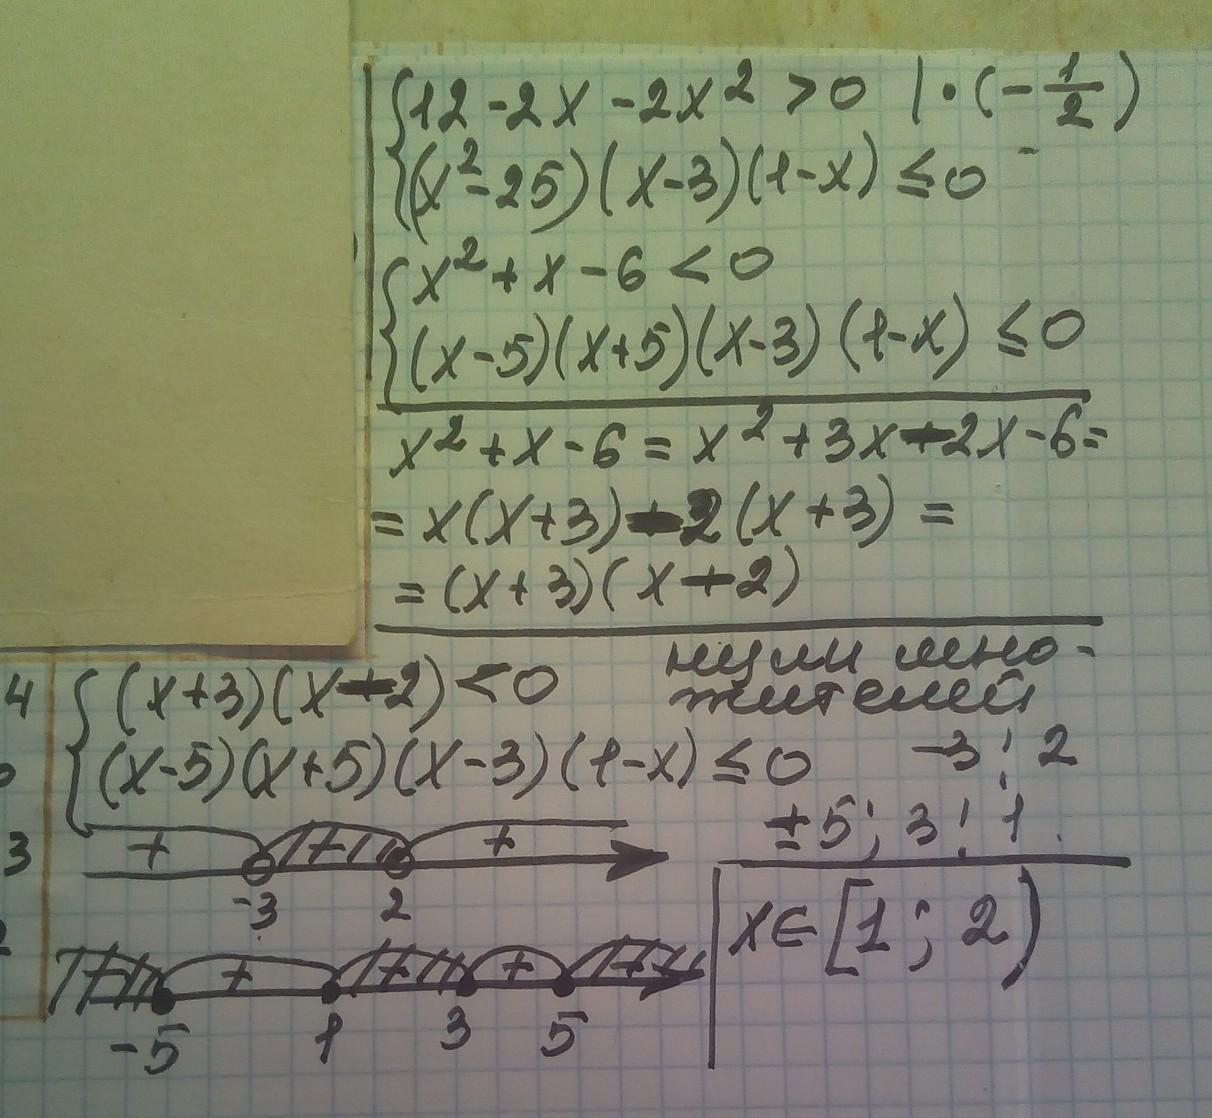 {12 - 2x - 2x² > 0 | · (- 1/2)
{(x² - 25)(x - 3)(1 - x) ≤ 0
{x² + x - 6 < 0
{(x - 5)(x + 5)(x - 3)(1 - x) ≤ 0
x² + x - 6 = x² + 3x - 2x - 6 =
= x(x + 3) - 2(x + 3) =
= (x + 3)(x - 2)
4
3
2
{(x + 3)(x - 2) < 0
{(x - 5)(x + 5)(x - 3)(1 - x) ≤ 0
нули мно-
жителей
-3; 2
±5; 3; 1
+ - +
-3 2
- + - + -
-5 1 3 5
x ∈ [1; 2)